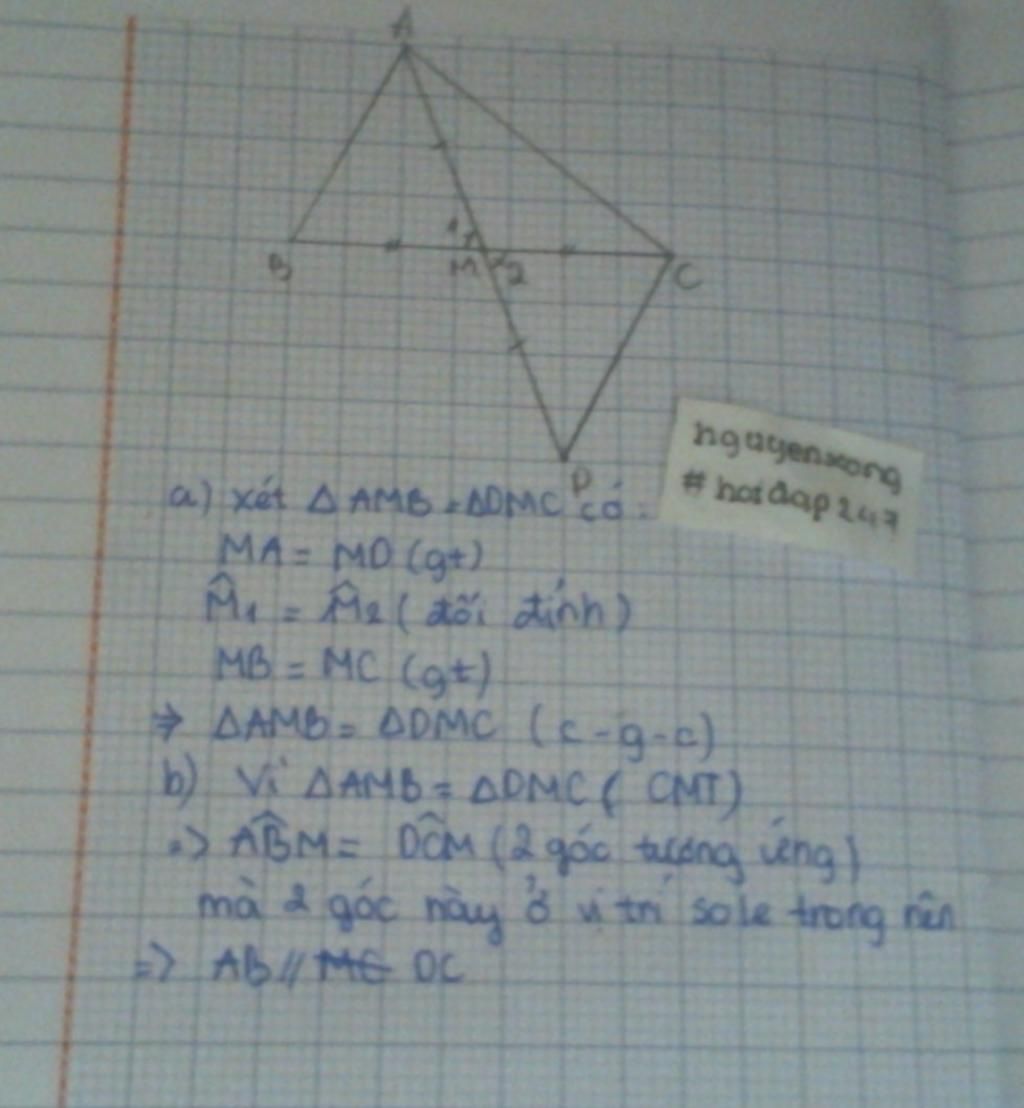 A
1
B
M
2
C
D
nguyenxong
#hoidap247
a) xét ΔAMB = ΔDMC có:
MA = MD (gt)
M̂1 = M̂2 (đối đỉnh)
MB = MC (gt)
⇒ ΔAMB = ΔDMC (c-g-c)
b) Vì ΔAMB = ΔDMC (CMT)
=> AB̂M = DĈM (2 góc tương ứng)
mà 2 góc này ở vị trí sole trong nên
=> AB // MC DC